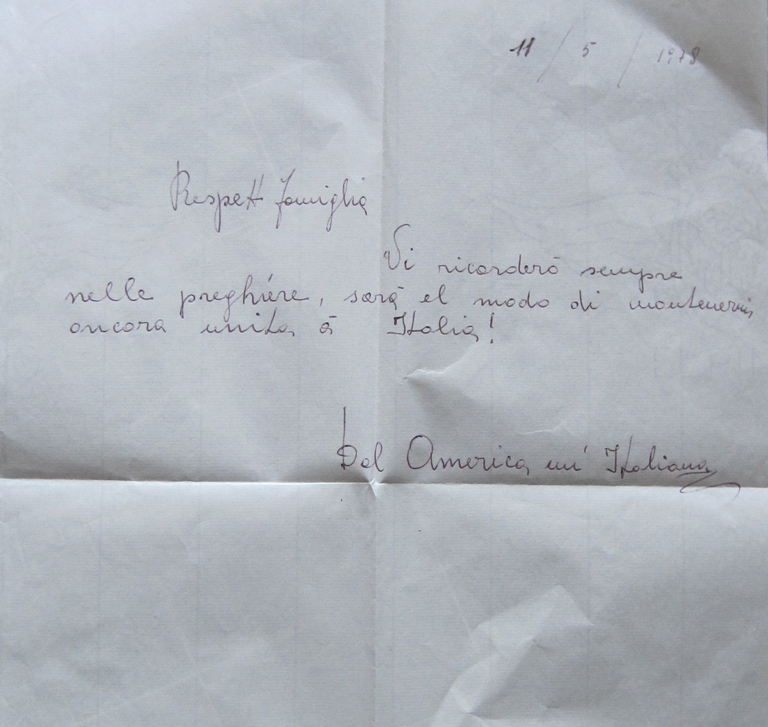 11 / 5 / 1978
Rispett famiglia
Vi ricorderò sempre
nelle preghiére, sarà el modo di mantenermi
ancora unita à Italia!
Dal America, un' Italiana